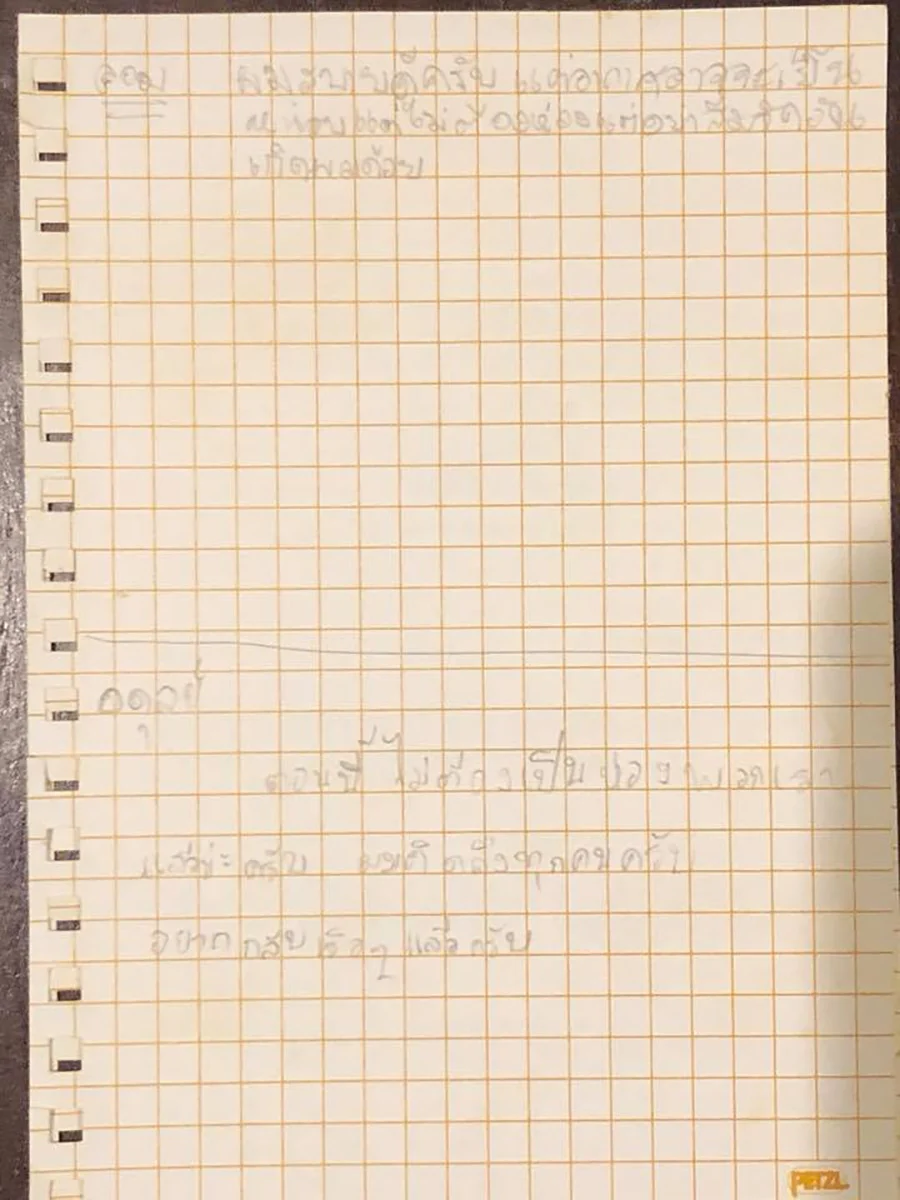 ดอม ผมสบายดีครับ แต่อากาศอาจจะเย็น
หน่อยแต่ไม่ต้องห่วง แต่อย่าลืมวัน
เกิดผมด้วย
อดุลย์
ตอนนี้ไม่ต้องเป็นห่วงพวกเรา
แล้วนะครับ ผมคิดถึงทุกคนครับ
อยากกลับเร็วๆ แล้วครับ
PETZL